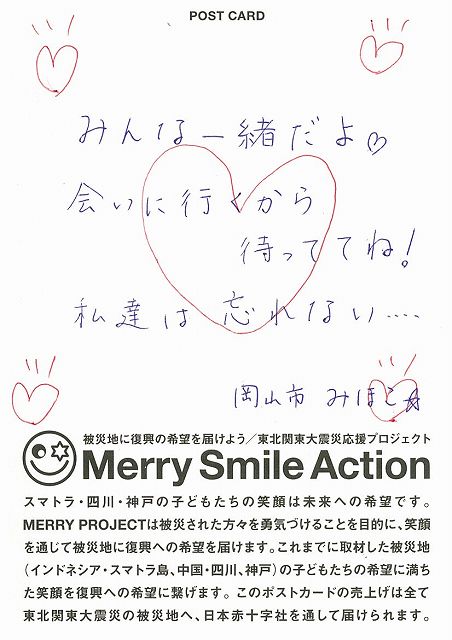 POST CARD
みんな一緒だよ♡
会いに行くから
待っててね!
私達は忘れない….
岡山市 みほこ☆
被災地に復興の希望を届けよう/東北関東大震災応援プロジェクト
Merry Smile Action
スマトラ・四川・神戸の子どもたちの笑顔は未来への希望です。
MERRY PROJECTは被災された方々を勇気づけることを目的に、笑顔
を通じて被災地に復興への希望を届けます。これまでに取材した被災地
(インドネシア・スマトラ島、中国・四川、神戸)の子どもたちの希望に満ち
た笑顔を復興への希望に繋げます。このポストカードの売上げは全て
東北関東大震災の被災地へ、日本赤十字社を通して届けられます。